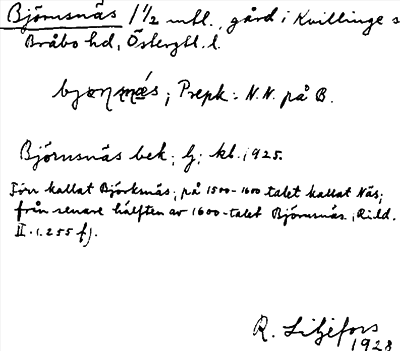 Björnsnäs 1 1/2 mtl., gård i Kvillinge s
Bråbo hd, Östergtl. l.
Prepk: N.N. på B.
Björnsnäs bek, lj, kb. 1925.
Förr kallat Björksnäs, på 1500-1600 talet kallat Näs;
från senare hälften av 1600-talet Björnsnäs (Ridd.
II. s. 255 f).
R. Liljefors
1928